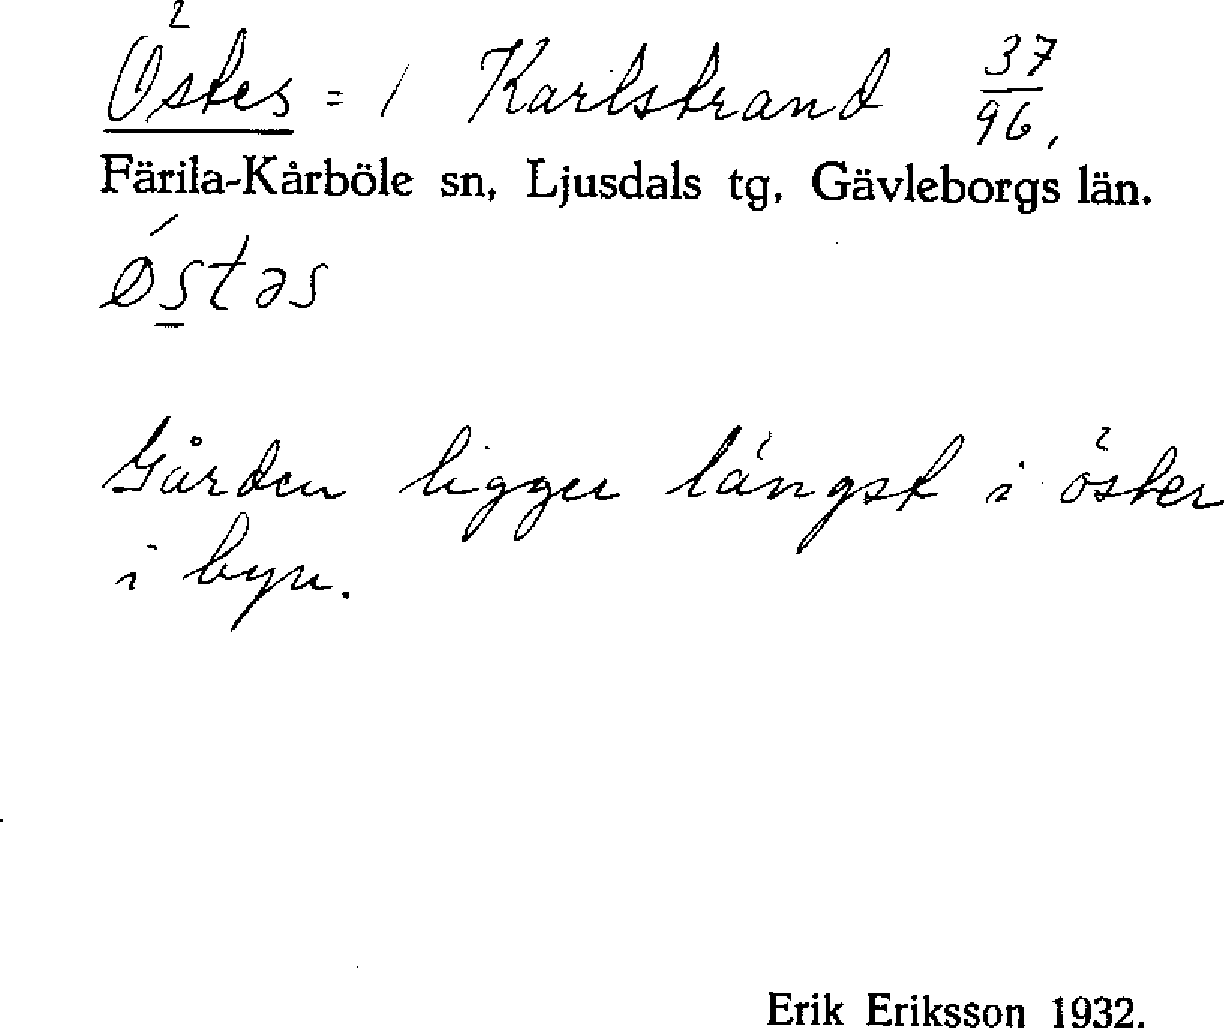 Östes = / Karlstrand 37/96.
Färila-Kårböle sn, Ljusdals tg, Gävleborgs län.
ǿstəs
Gården ligger längst i öster
i byn.
Erik Eriksson 1932.